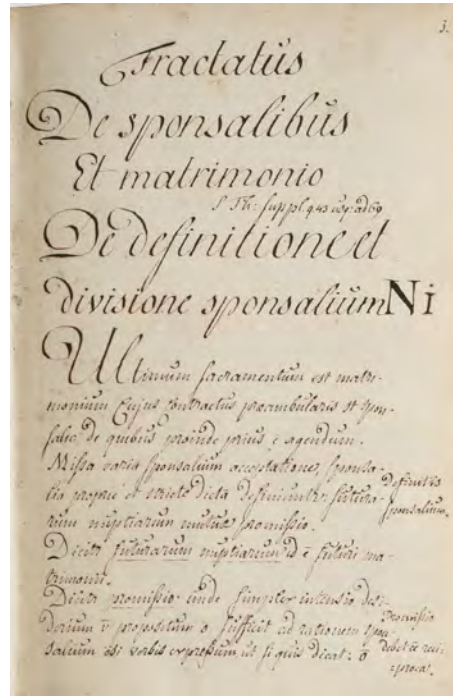 1.
Tractatus
De sponsalibus
Et matrimonio
S. Th: suppl. q 43 usq: ad 69
De definitione et
divisione sponsalium N i
Ultimum sacramentum est matri-
monium Cujus contractus praeambularis st spon-
salia, de quibus proinde prius ē agendum.
Missa varia sponsalium acceptatione, sponsa-
lia proprie et stricte dicta definiuntr: futura-
rum nuptiarum mutua promissio.
Definitio
sponsalium.
Dicitr futurarum nuptiarum id ē futuri ma-
trimonii.
Dicitr promissio: unde simpler intensio desi-
derium v̄ propositum ō sufficit ad rationem spon-
salium etsi verbis expressum, ut si quis dicat: ō
Promissio
debet ēe reci-
proca.